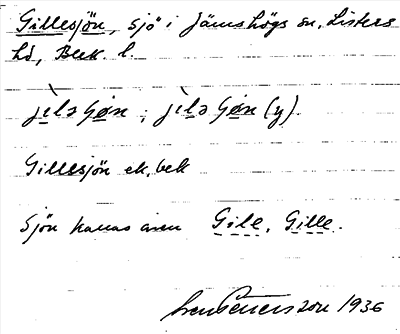 Gillesjön, sjö i Jämshögs sn, Listers
hd, Blek. l.
jìlə ʃøn ; jìlə ʃøn (y).
Gillesjön ek. bek
Sjön kallas även Gile, Gille.
Sven Petersson 1936